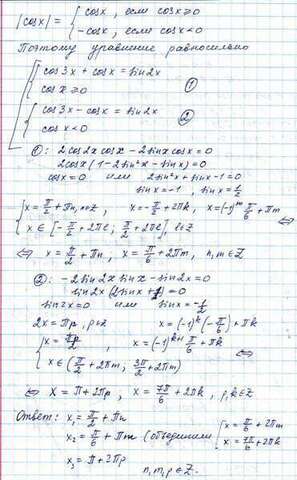 |cosx| = { cosx, если cosx ≥ 0
-cosx, если cosx < 0
Поэтому уравнение равносильно
cos3x + cosx = sin2x
cosx ≥ 0 ①
cos3x - cosx = sin2x ②
cosx < 0
①: 2cos2x cosx - 2sinx cosx = 0
2cosx (1 - 2sin²x - sinx) = 0
cosx = 0 или 2sin²x + sinx - 1 = 0
sinx = -1, sinx = 1/2
{ x = π/2 + πn, n∈Z, x = -π/2 + 2πk, x = (-1)^m π/6 + πm
x ∈ [-π/2 + 2πl; π/2 + 2πl], l∈Z
⇔ x = π/2 + πn, x = π/6 + 2πm, n, m ∈ Z
②: -2sin2x sinx - sin2x = 0
sin2x (2sinx + 1) = 0
sin2x = 0 или sinx = -1/2
2x = πp, p∈Z x = (-1)^k (-π/6) + πk
{ x = πp/2, x = (-1)^k+1 π/6 + πk ⇔
x ∈ (π/2 + 2πm, 3π/2 + 2πm)
⇔ x = π + 2πp, x = 7π/6 + 2πk, p, k ∈ Z
Ответ: x₁ = π/2 + πn
x₂ = π/6 + πm (объединили [ x = π/6 + 2πm
x = 7π/6 + 2πk
x₃ = π + 2πp
n, m, p ∈ Z.